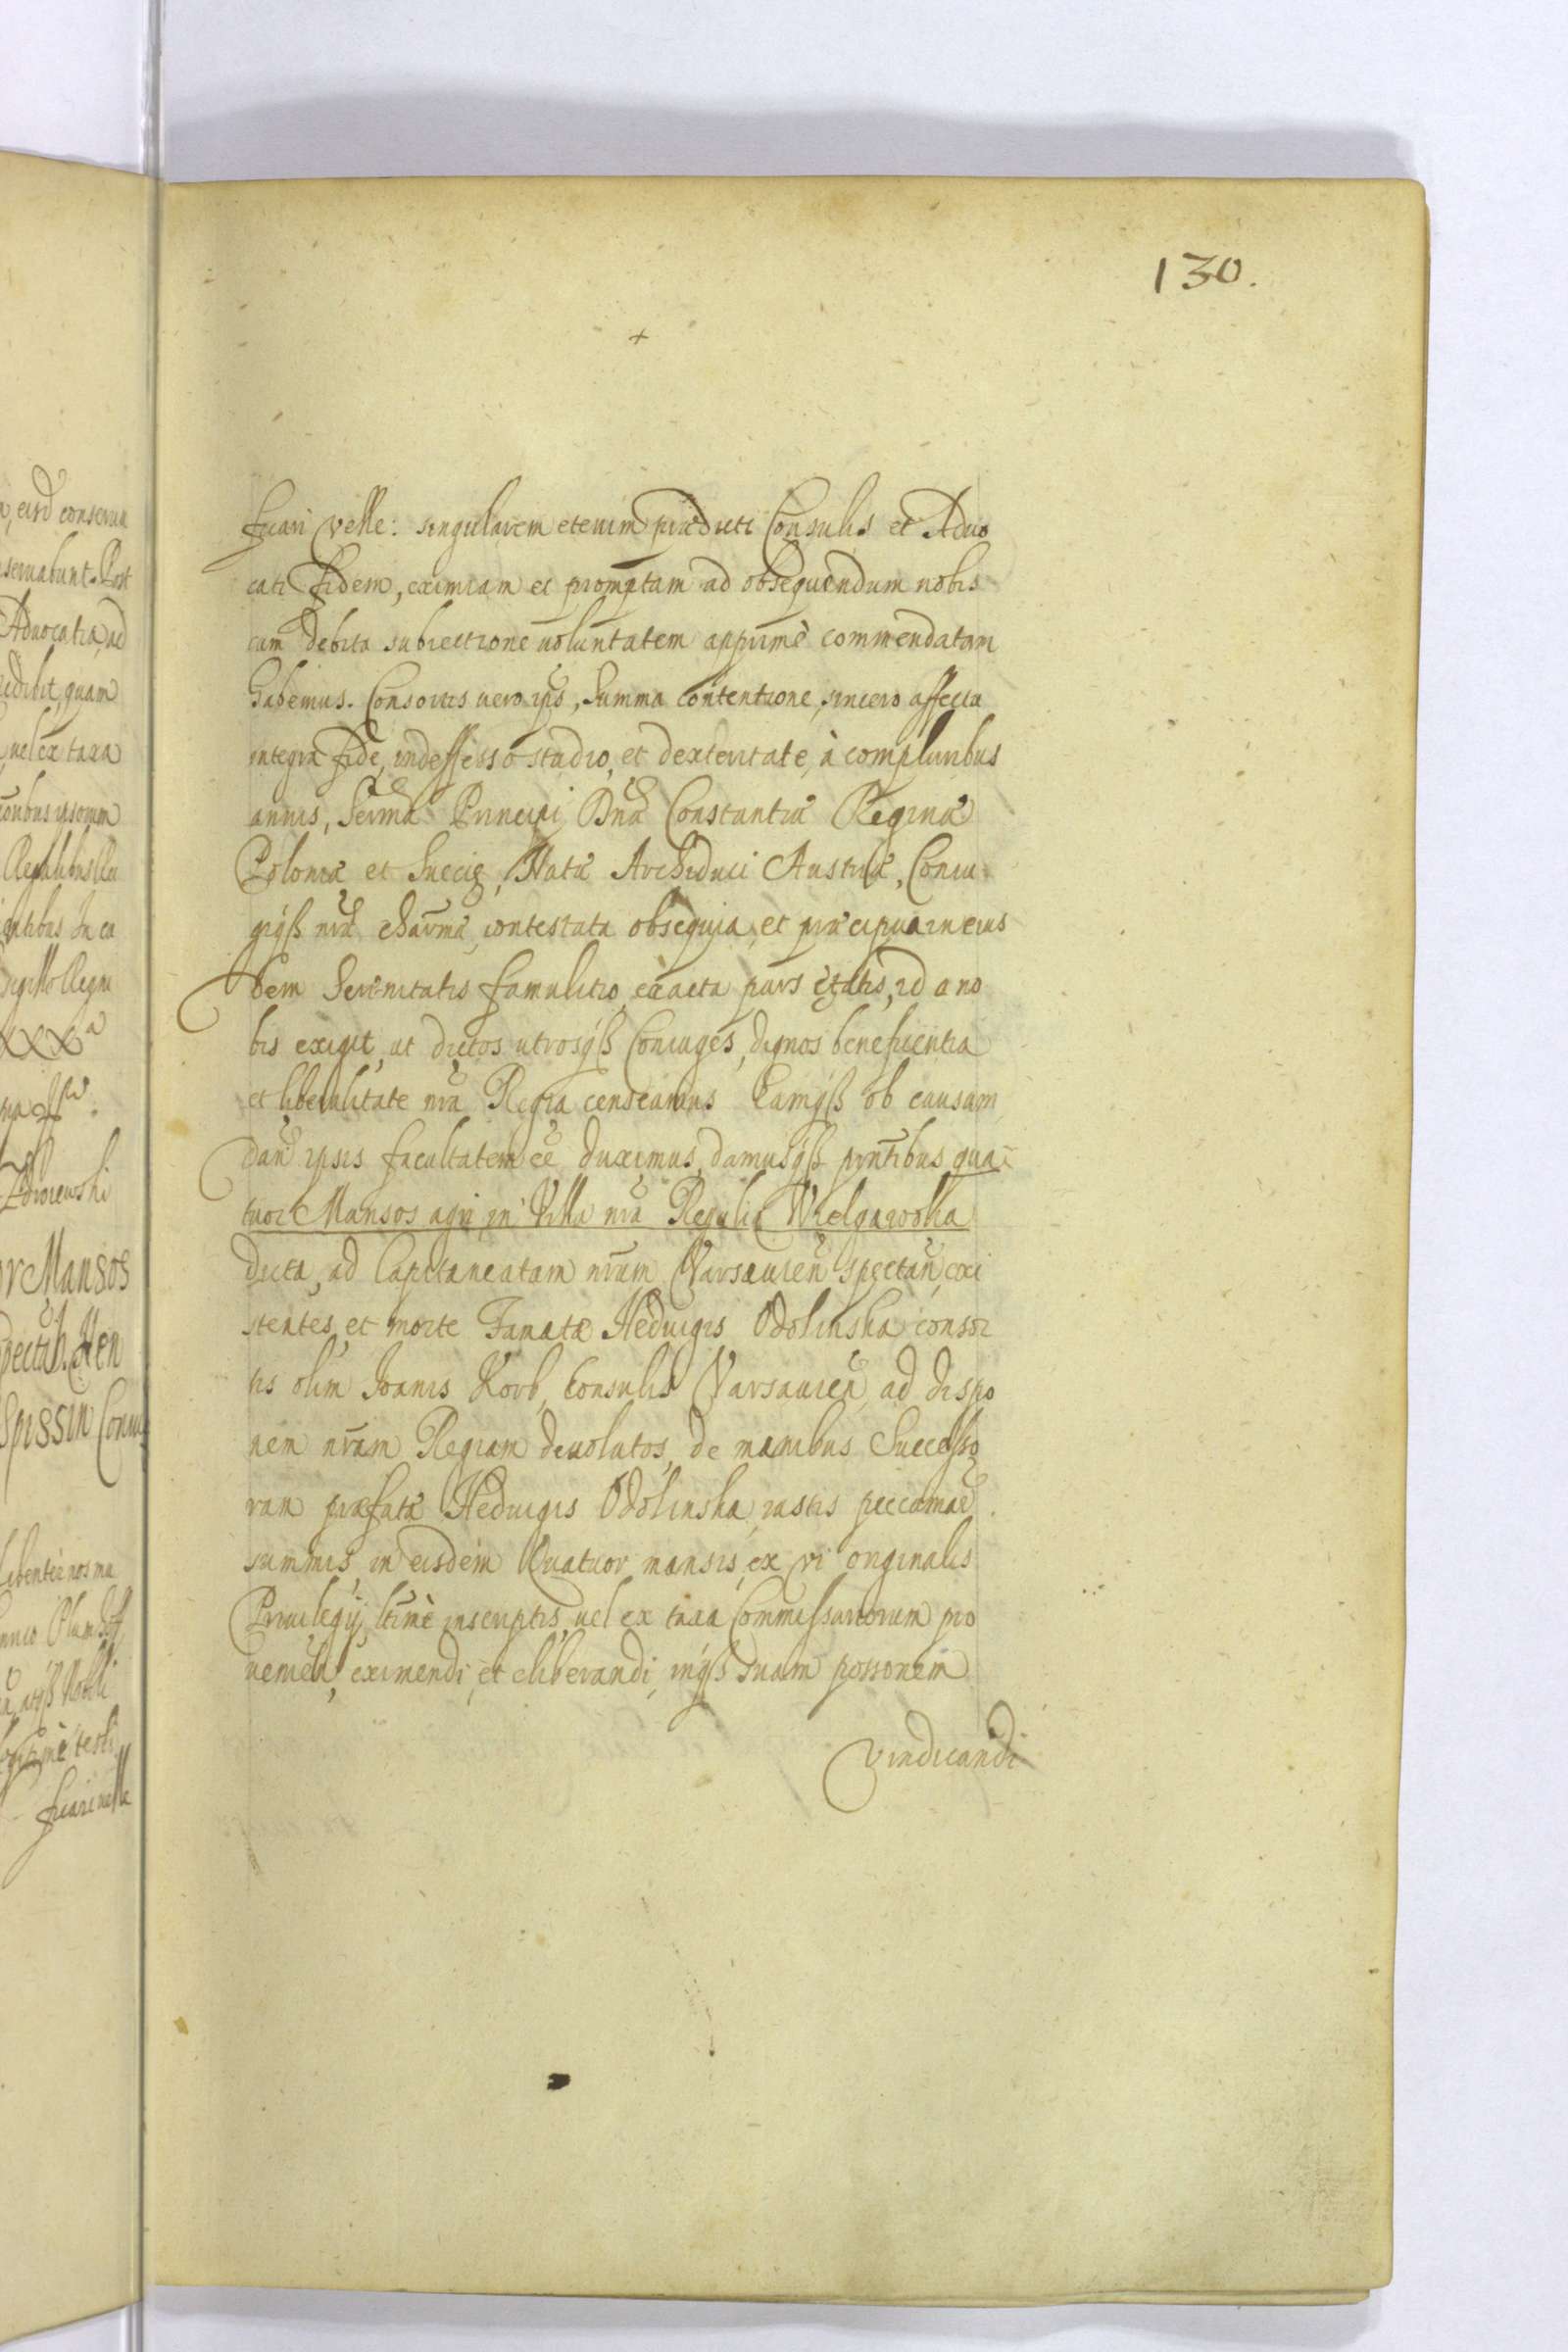 130.
+
ficari velle: singularem etenim prædicti Consulis et Aduo
cati fidem, eximiam et promptam ad obsequendum nobis
cum debita subiectione uoluntatem apprimè commendatam
habemus. Consortis uero ipsˢ, summa contentione, sincero affectu
integra fide, indeffesso studio, et dexteritate, à compluribus
annis, Serma Principi Dna Constantiæ Reginæ
Poloniæ et Sueciæ, Natæ Archiduci Austriæ, Coniu-
giqß nræ charmæ, contestata obsequia, et præcipua in eius
dem Serenitatis famulitio, exacta pars ętatis, id a no
bis exigit, ut dictos utrosqß Coniuges, dignos beneficentia
et liberalitate nra Regia censeamus Eamqß ob causam
dan ipsis facultatem ee duximus, damusqß pntibus qua-
tuor Mansos agri in Villa nra Regali Wielgawolka
dicta, ad Capitaneatum nrum Varsauien spectan, exi
stentes, et morte Famatæ Heduigis Odolinska consor
tis olim Joanis Korb, Consulis Varsauien, ad dispo
nem nram Regiam deuolutos, de manibus Successo
rum præfatæ Heduigis Odolinska, iustis peccuniae
summis, in eisdem Quatuor mansis, ex vi originalis
Priuilegij, ltimè inscriptis, uel ex taxa Commissariorum pro
uenien, eximendi, et eliberandi, inqß suam possonem
vindicandi